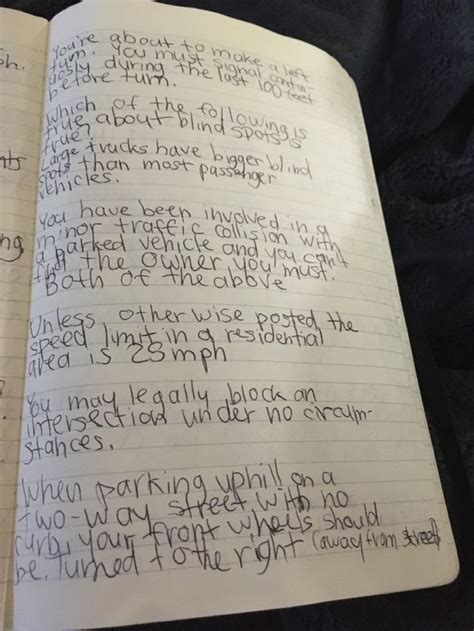 You're about to make a left
turn. You must signal contin-
uosly during the last 100 feet
before turn.
Which of the following is
true about blind spots is
true,
Large trucks have bigger blind
spots than most passenger
vehicles.
You have been involved in a
minor traffic collision with
a parked vehicle and you can't
find the owner you must:
Both of the above
Unless other wise posted, the
speed limit in a residential
area is 25 mph
You may legally block an
intersection under no circum-
stances.
When parking uphill on a
two-way street with no
curb, your front wheels should
be. Turned to the right (away from street)
ph.
nts
ng